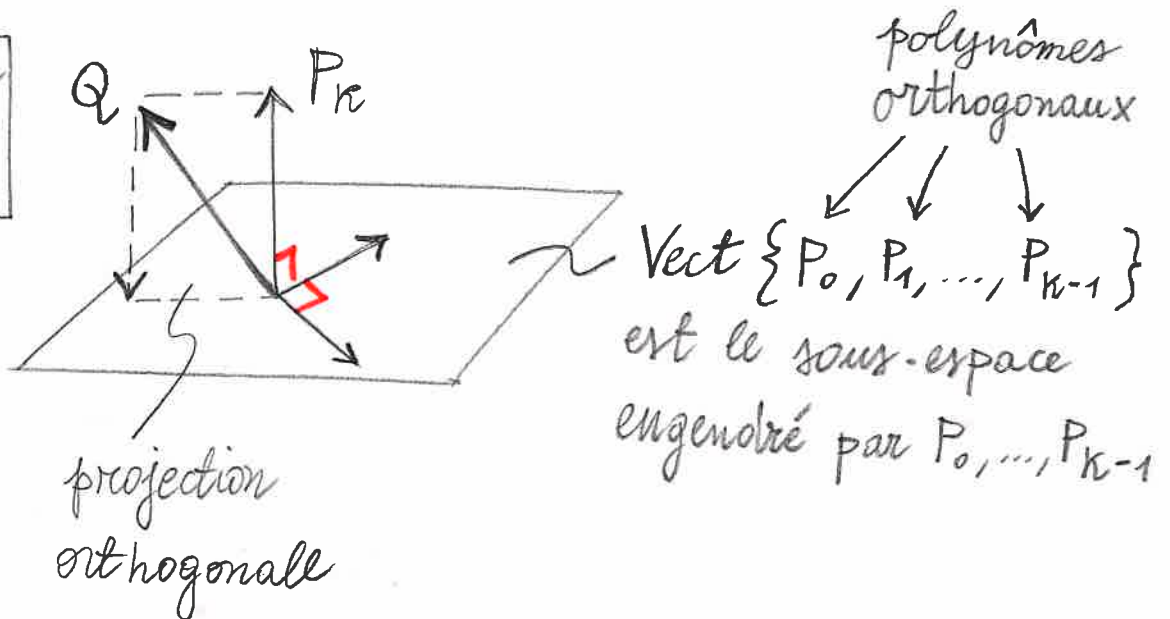 polynômes
orthogonaux
Q
P_k
Vect {P_0, P_1, ..., P_{k-1}}
est le sous-espace
engendré par P_0, ..., P_{k-1}
projection
orthogonale